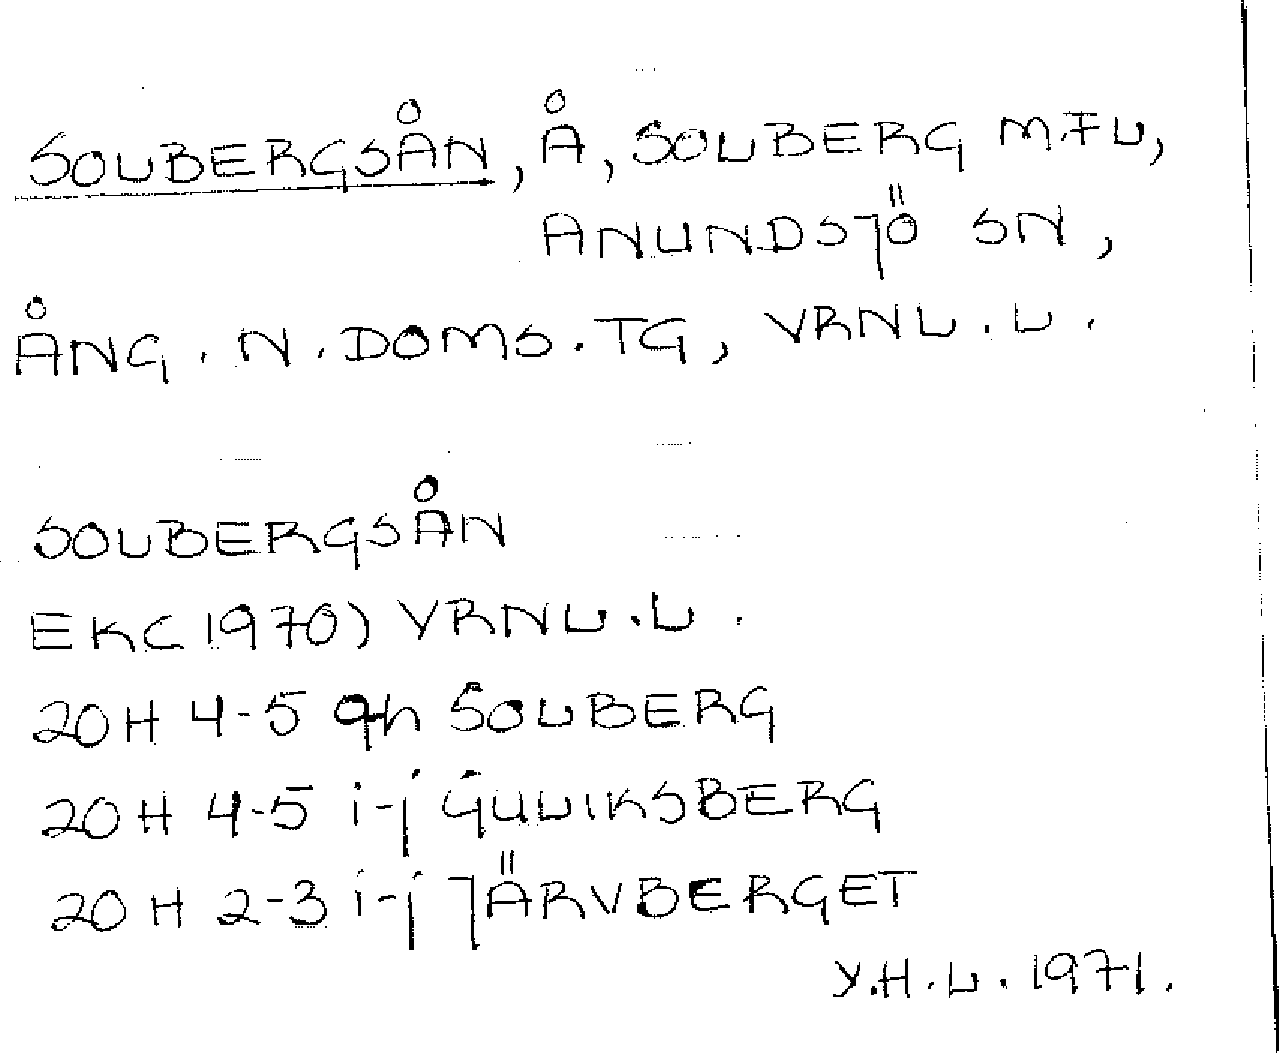 SOLBERGSÅN, Å, SOLBERG M.FL,
ANUNDSJÖ SN,
ÅNG. N. DOMS. TG, VRNL. L.
SOLBERGSÅN
EK(1970) VRNL. L.
20H 4-5 gh SOLBERG
20H 4-5 i-j GULLIKSBERG
20H 2-3 i-j JÄRVBERGET
Y.H.L. 1971.